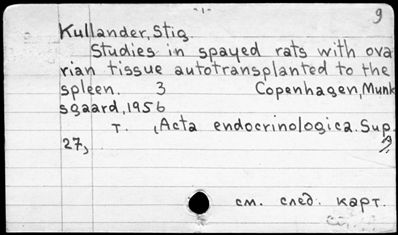 -1-
9
Kullander, Stig
Studies in spayed rats with ova
rian tissue autotransplanted to the
spleen. 3 Copenhagen, Munk
sgaard, 1956
т. (Acta endocrinologica. Sup.
27)
см. след. карт.